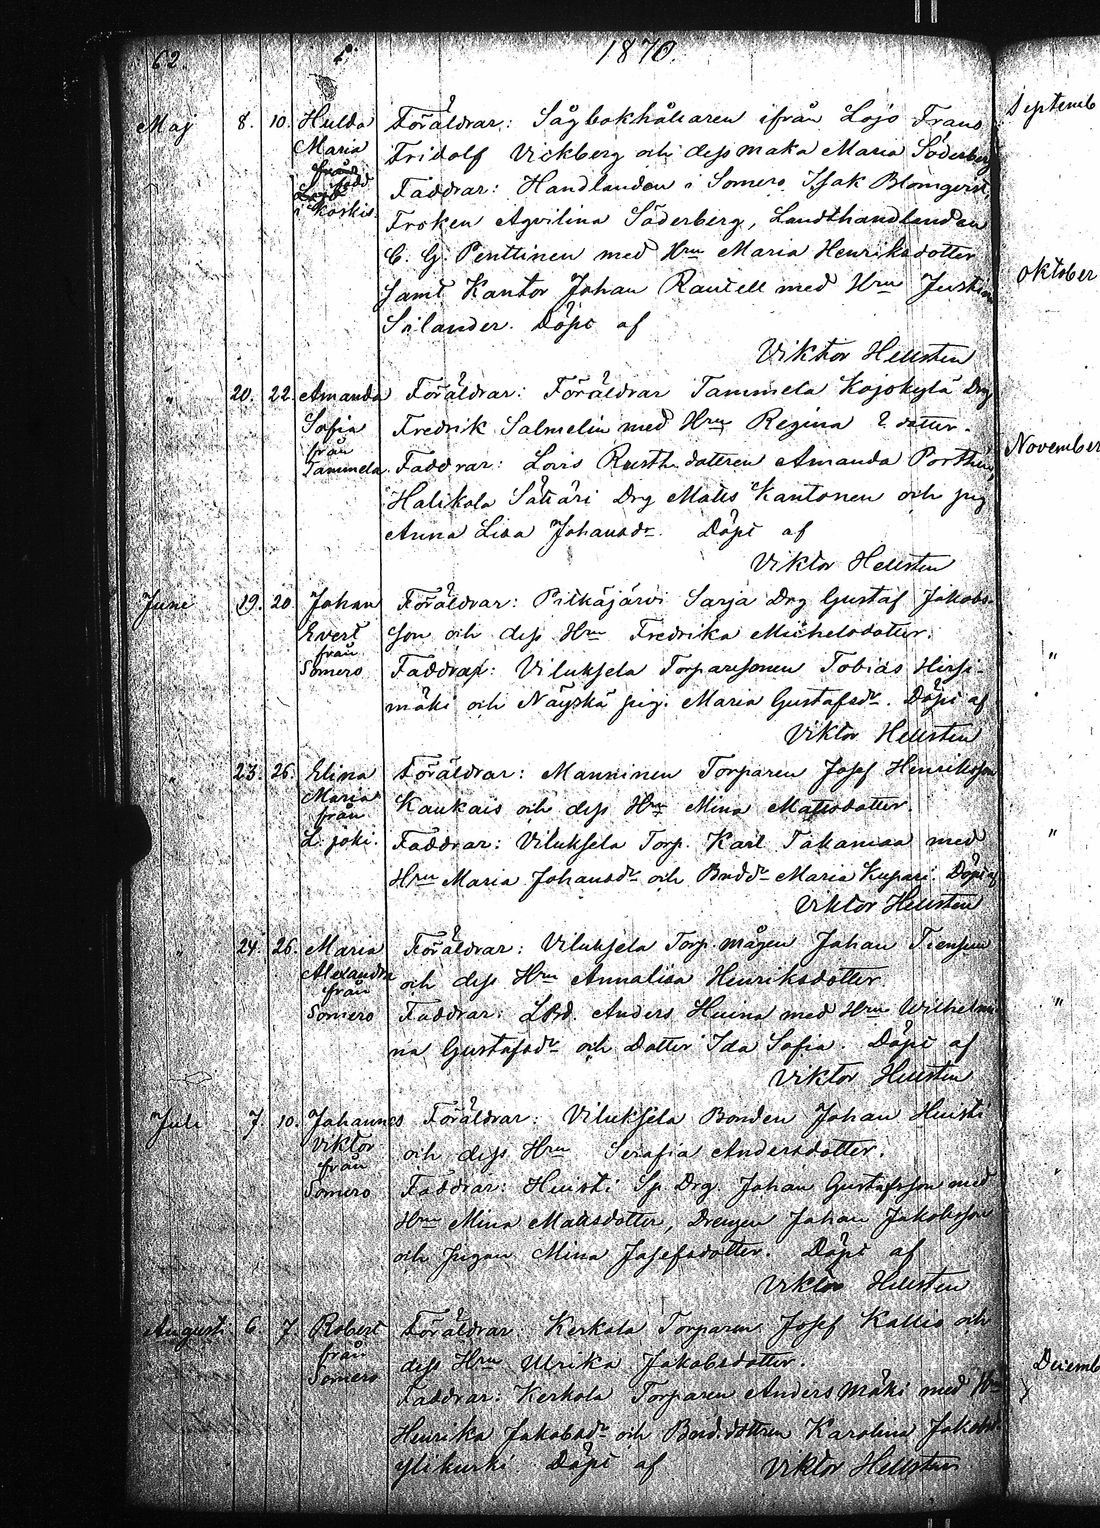 62.
1870.
Maj 8. 10. Hulda Föräldrar: Sågbokhållaren ifrån Lojo Frans
Maria Fridolf Vickberg och dess maka Maria Söderberg
född Faddrar: Handlanden i Somero Isak Blomqvist,
i Koskis. Fröken Aqvilina Söderberg, Landthandlanden
C. G. Penttinen med Hru Maria Henriksdotter
samt Kantor Johan Rautell med Hru Justina
Silander. Döpt af
Viktor Hellsten
" 20. 22. Amanda Föräldrar: Föräldrar Tammela Kojokylä Drg
Sofia Fredrik Salmelin med Hru Regina ? dotter.
från
Tammela. Faddrar: Lovis Rusth. dotteren Amanda Porthen,
Halikola Sätäri Drg Matts Kantonen och pig
Anna Lisa Johansdr. Döpt af
Viktor Hellsten
June 19. 20. Johan Föräldrar: Pitkäjärvi Sarja Drg Gustaf Jakobs-
Evert son och dess Hru Fredrika Michelsdotter.
från
Somero Faddrar: Viluksela Torparesonen Tobias Hirsi-
mäki och Näyskä pig. Maria Gustafsdr. Döpt af
Viktor Hellsten
" 23. 26. Elina Föräldrar: Manninen Torparen Josef Henriksson
Maria Kaukais och dess Hru Mina Matsdotter.
från
L. joki. Faddrar: Viluksela Torp. Karl Takamaa med
Hru Maria Johansdr och Bnddr Maria Kupari. Döpt af
Viktor Hellsten
" 24. 26. Maria Föräldrar: Viluksela Torp. mågen Johan Tiensuu
Alexandra och dess Hru Annalisa Henriksdotter.
från
Somero Faddrar: Anders Huina med Hru Wilhelmi-
na Gustafsdr och Dotter Ida Sofia. Döpt af
Viktor Hellsten
Juli 7. 10. Johannes Föräldrar: Viluksela Bonden Johan Huisti
Viktor och dess Hru Serafia Andersdotter.
från
Somero Faddrar: Huisti Sp. Drg. Johan Gustafsson med
Hru Mina Matsdotter, Drengen Johan Jakobsson
och pigan Mina Josefsdotter. Döpt af
Viktor Hellsten
Augusti 6. 7. Robert Föräldrar: Kerkola Torparen Josef Kallio och
från dess Hru Ulrika Jakobsdotter.
Somero
Faddrar: Kerkola Torparen Anders Mäki med Hru
Henrika Jakobsdr och Bnd. dottren Karolina Jakobsdr
Ylikurki. Döpt af Viktor Hellsten
Septemb
Oktober
November
"
"
"
"
Decemb